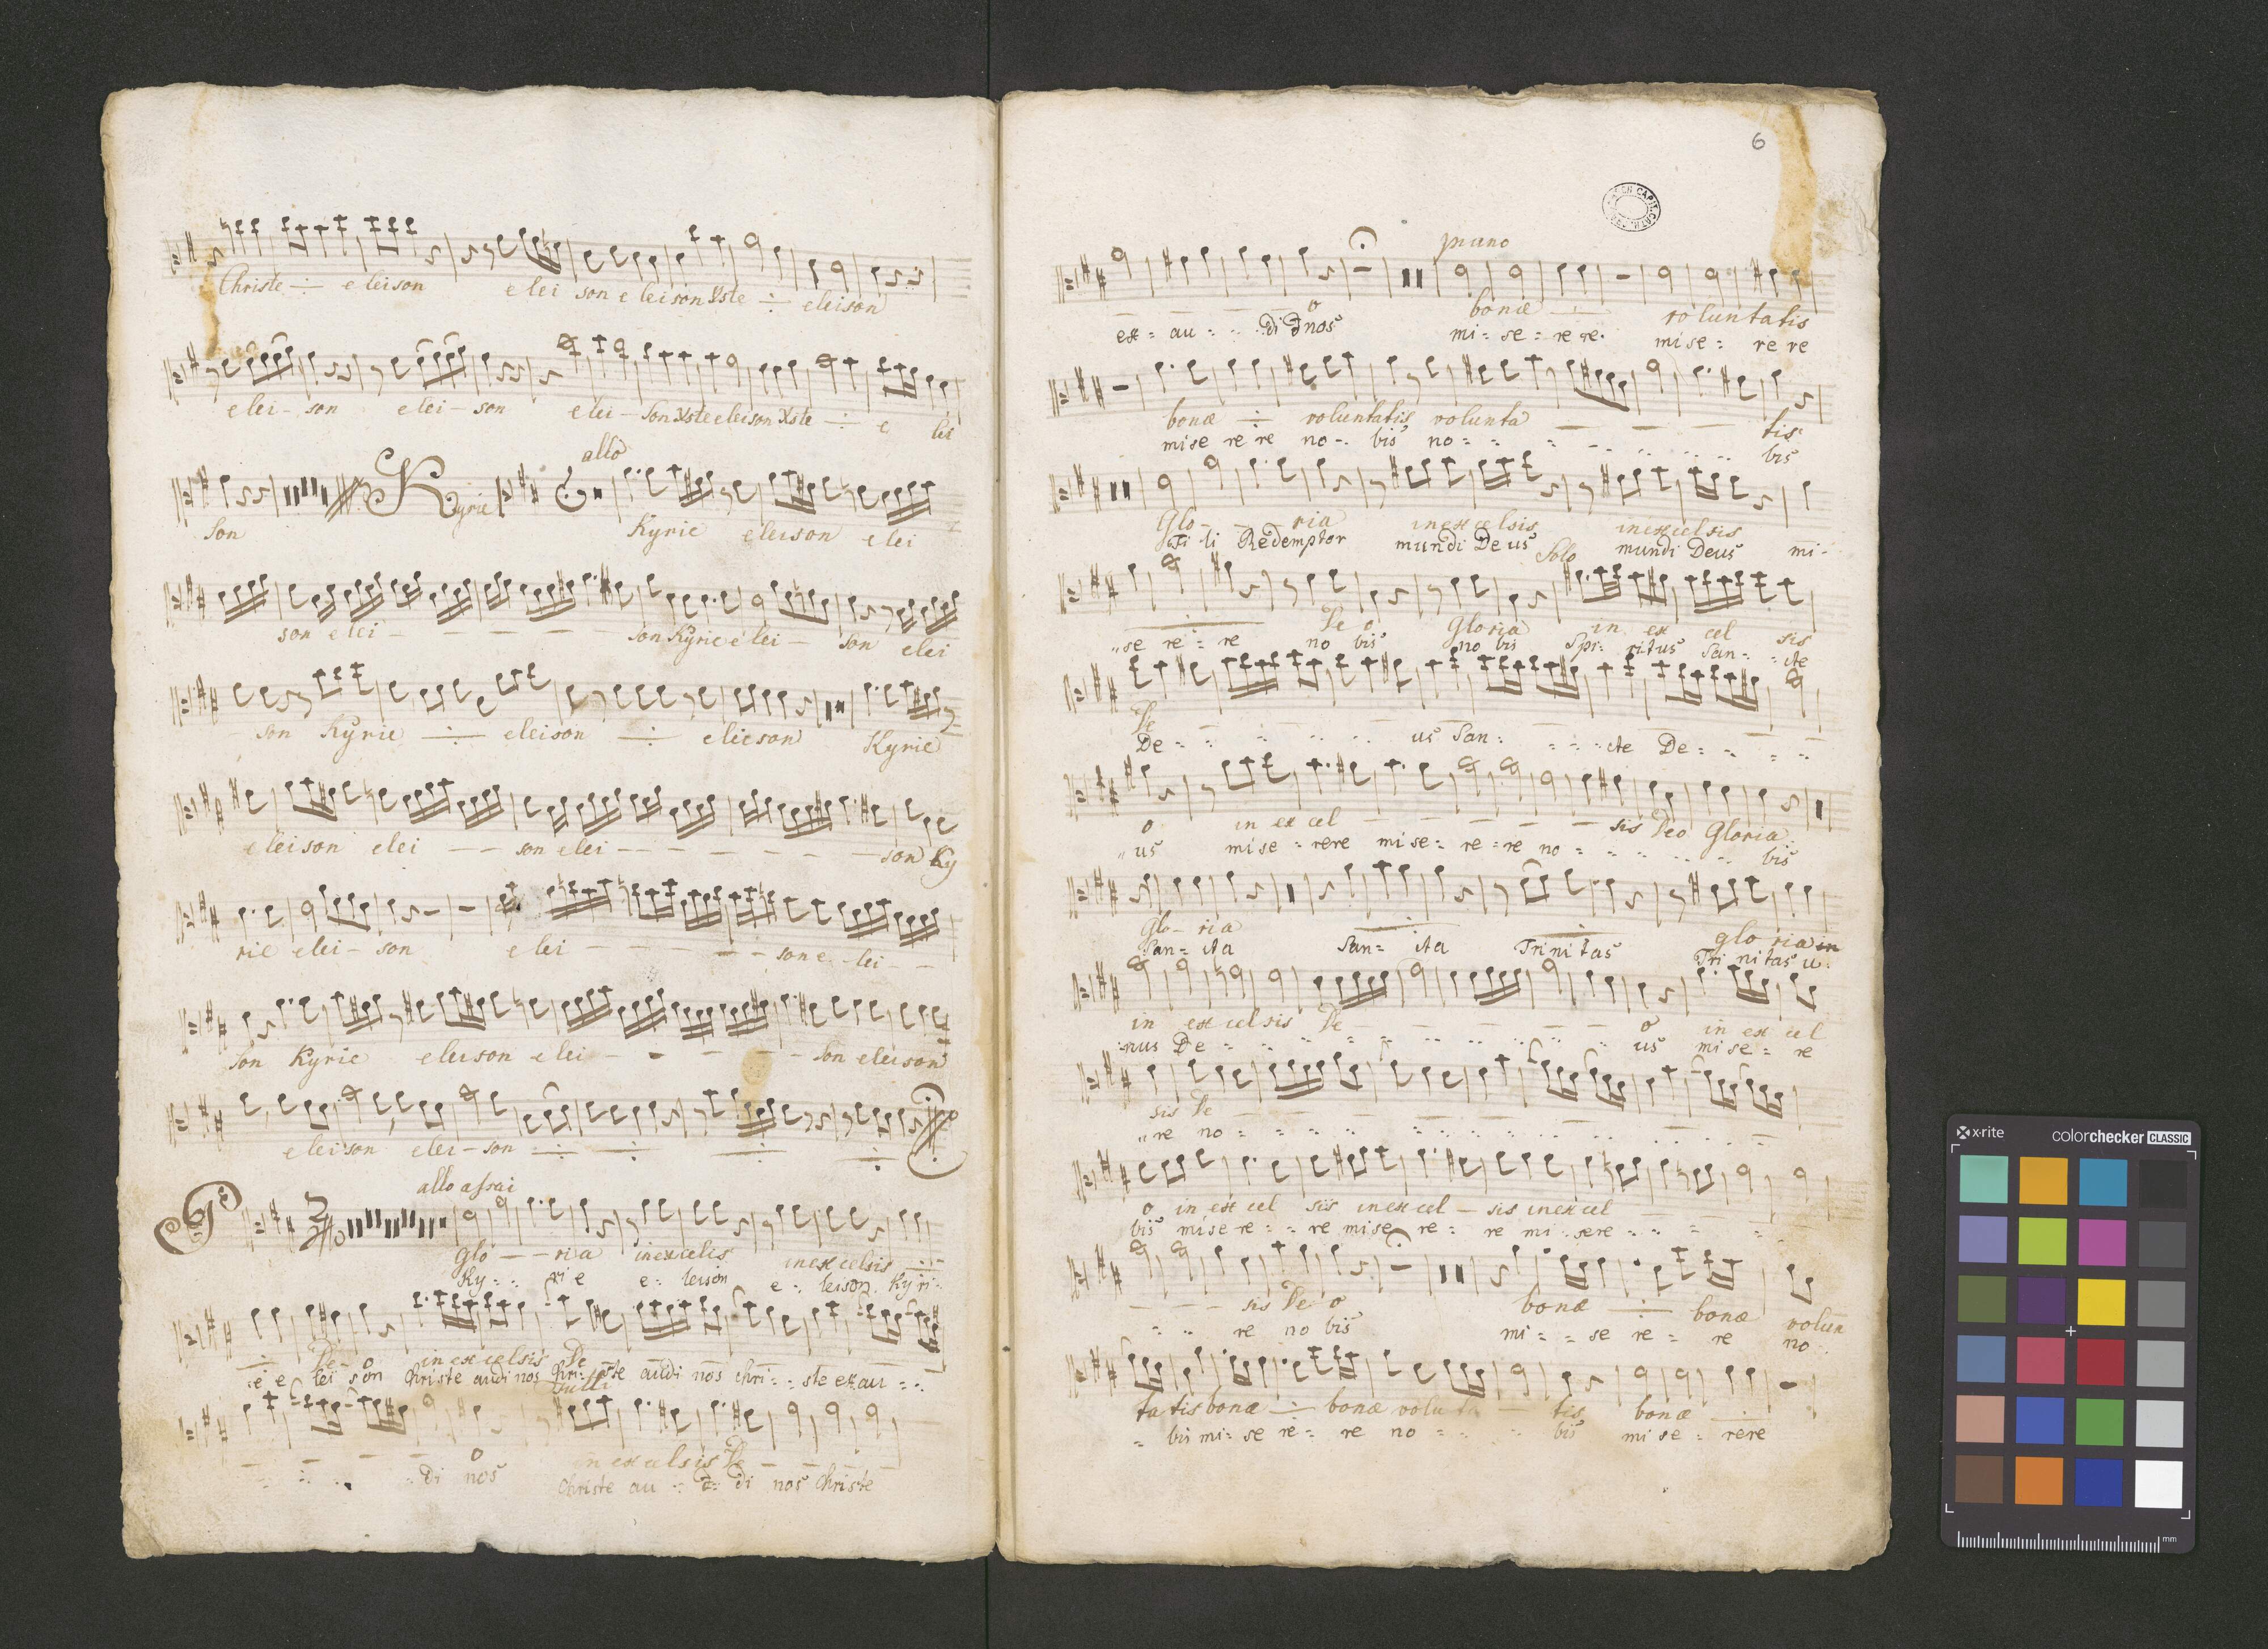 Christe eleison elei son e leison Xste eleison
elei - son elei - son elei - son Xste eleison Xste e lei
allo
son Kyrie Kyrie eleison elei
son elei - - - - - son Kyrie elei - son elei
son Kyrie eleison eleison Kyrie
eleison elei - - son elei - - - - - - - son Ky
rie elei - son elei - - - - - son e - lei - -
son Kyrie eleison elei - - - - - son eleison
eleison elei - son
allo assai
Glo - - ria in excelsis in excelsis
Ky - : ri e e : leison e : leison Kyri :
De - o in excelsis De
e e lei son Christe audi nos Chri : ste audi nos Chri : : ste exau : :
tutti
- - - - o in excelsis De - - - -
: di nos Christe au : : di nos Christe
6
piano
- - - - o bonæ voluntatis
ex = au : : di nos mi = se = re re. mise : re re
bonæ voluntatis volunta - - - - tis
mise re re no - : bis no = : bis
Glo - - ria in excelsis in excelsis
Fi li Redemptor mundi Deus mundi Deus mi -
Solo
De o Gloria in ex cel sis
se re : re no bis no bis Spi : ritus San : : cte
De - - - - - - - -
De : : us San : : : cte De : :
o in excel - - - - - - sis Deo Gloria
us mise : rere mise : re = re no = : : bis
Glo - ria gloria in
San = cta San = cta Trinitas Tri nitas u :
in excelsis De - - - - - o in ex cel
: nus De : : us mi se : re
sis De - - - - - - - -
re no = : :
o in excel sis in excel - sis in excel - - -
bis mise re : : re mise re : re mi : sere : :
- - - sis De o bonæ bonæ volun
: : re no bis mi : : se re = re no :
ta tis bonæ bonæ volu ta - tis bonæ
= bis mi : se re : re no = : : bis mi se : rere
x-rite colorchecker CLASSIC
mm